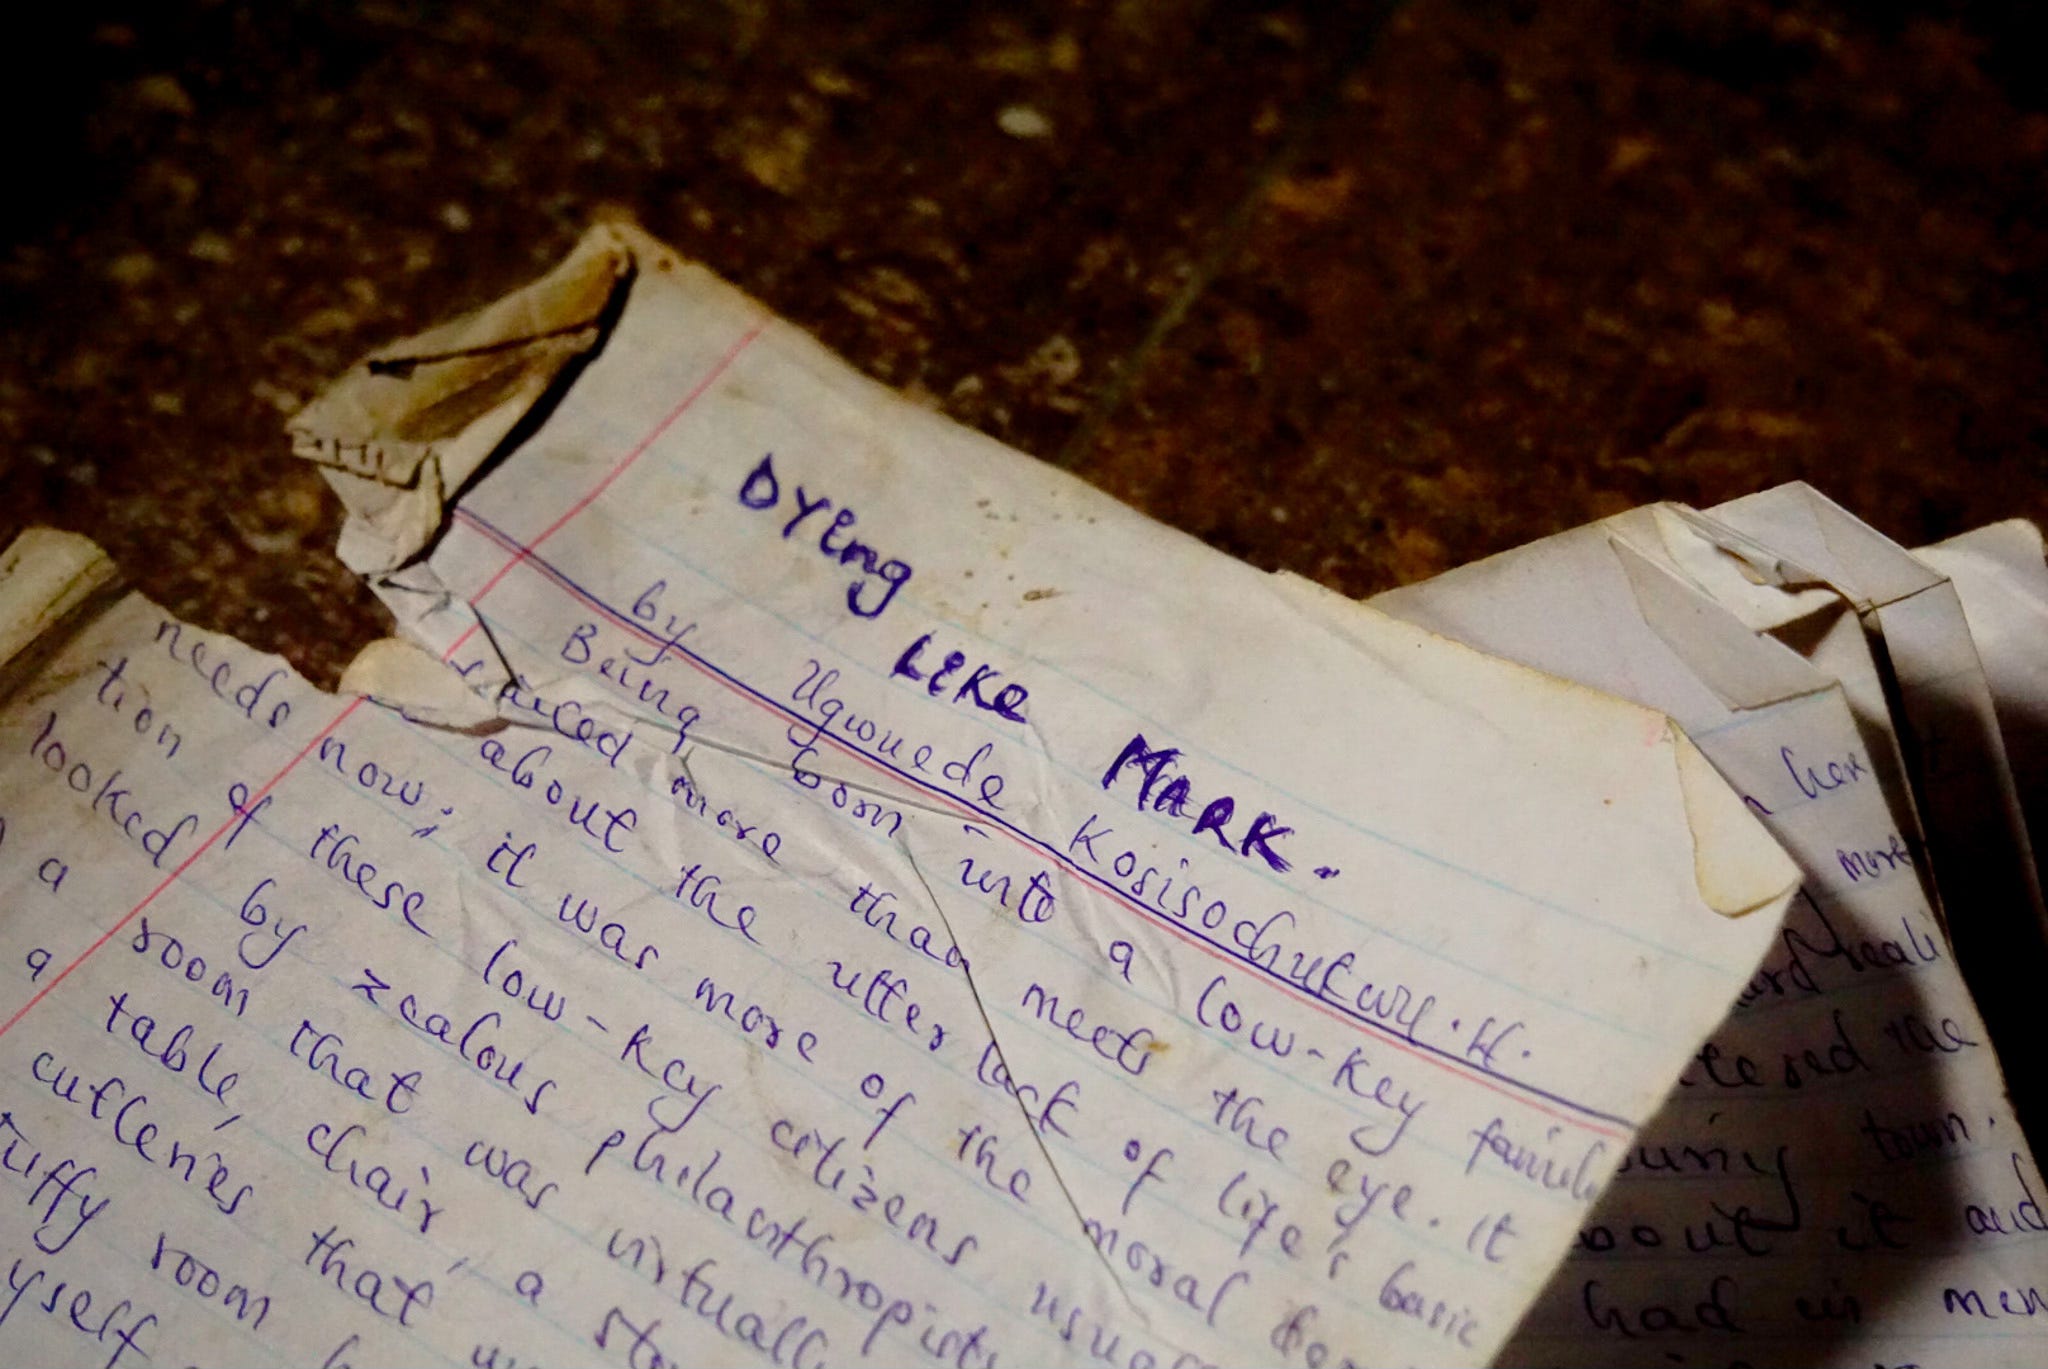 DYing LiKe MARK.
by Ugwuede Kosisochukwu.H.
Being born into a low-key family
more than meets the eye. It
about the utter lack of life's basic
needs now; it was more of the moral
tion of these low-key citizens usuall
looked by zealous philanthropists
a room that was virtuall
a table, chair, a sto
cutleries that
tuffy room
yself
her
more
ard reali
the
town.
bout it and
had in men